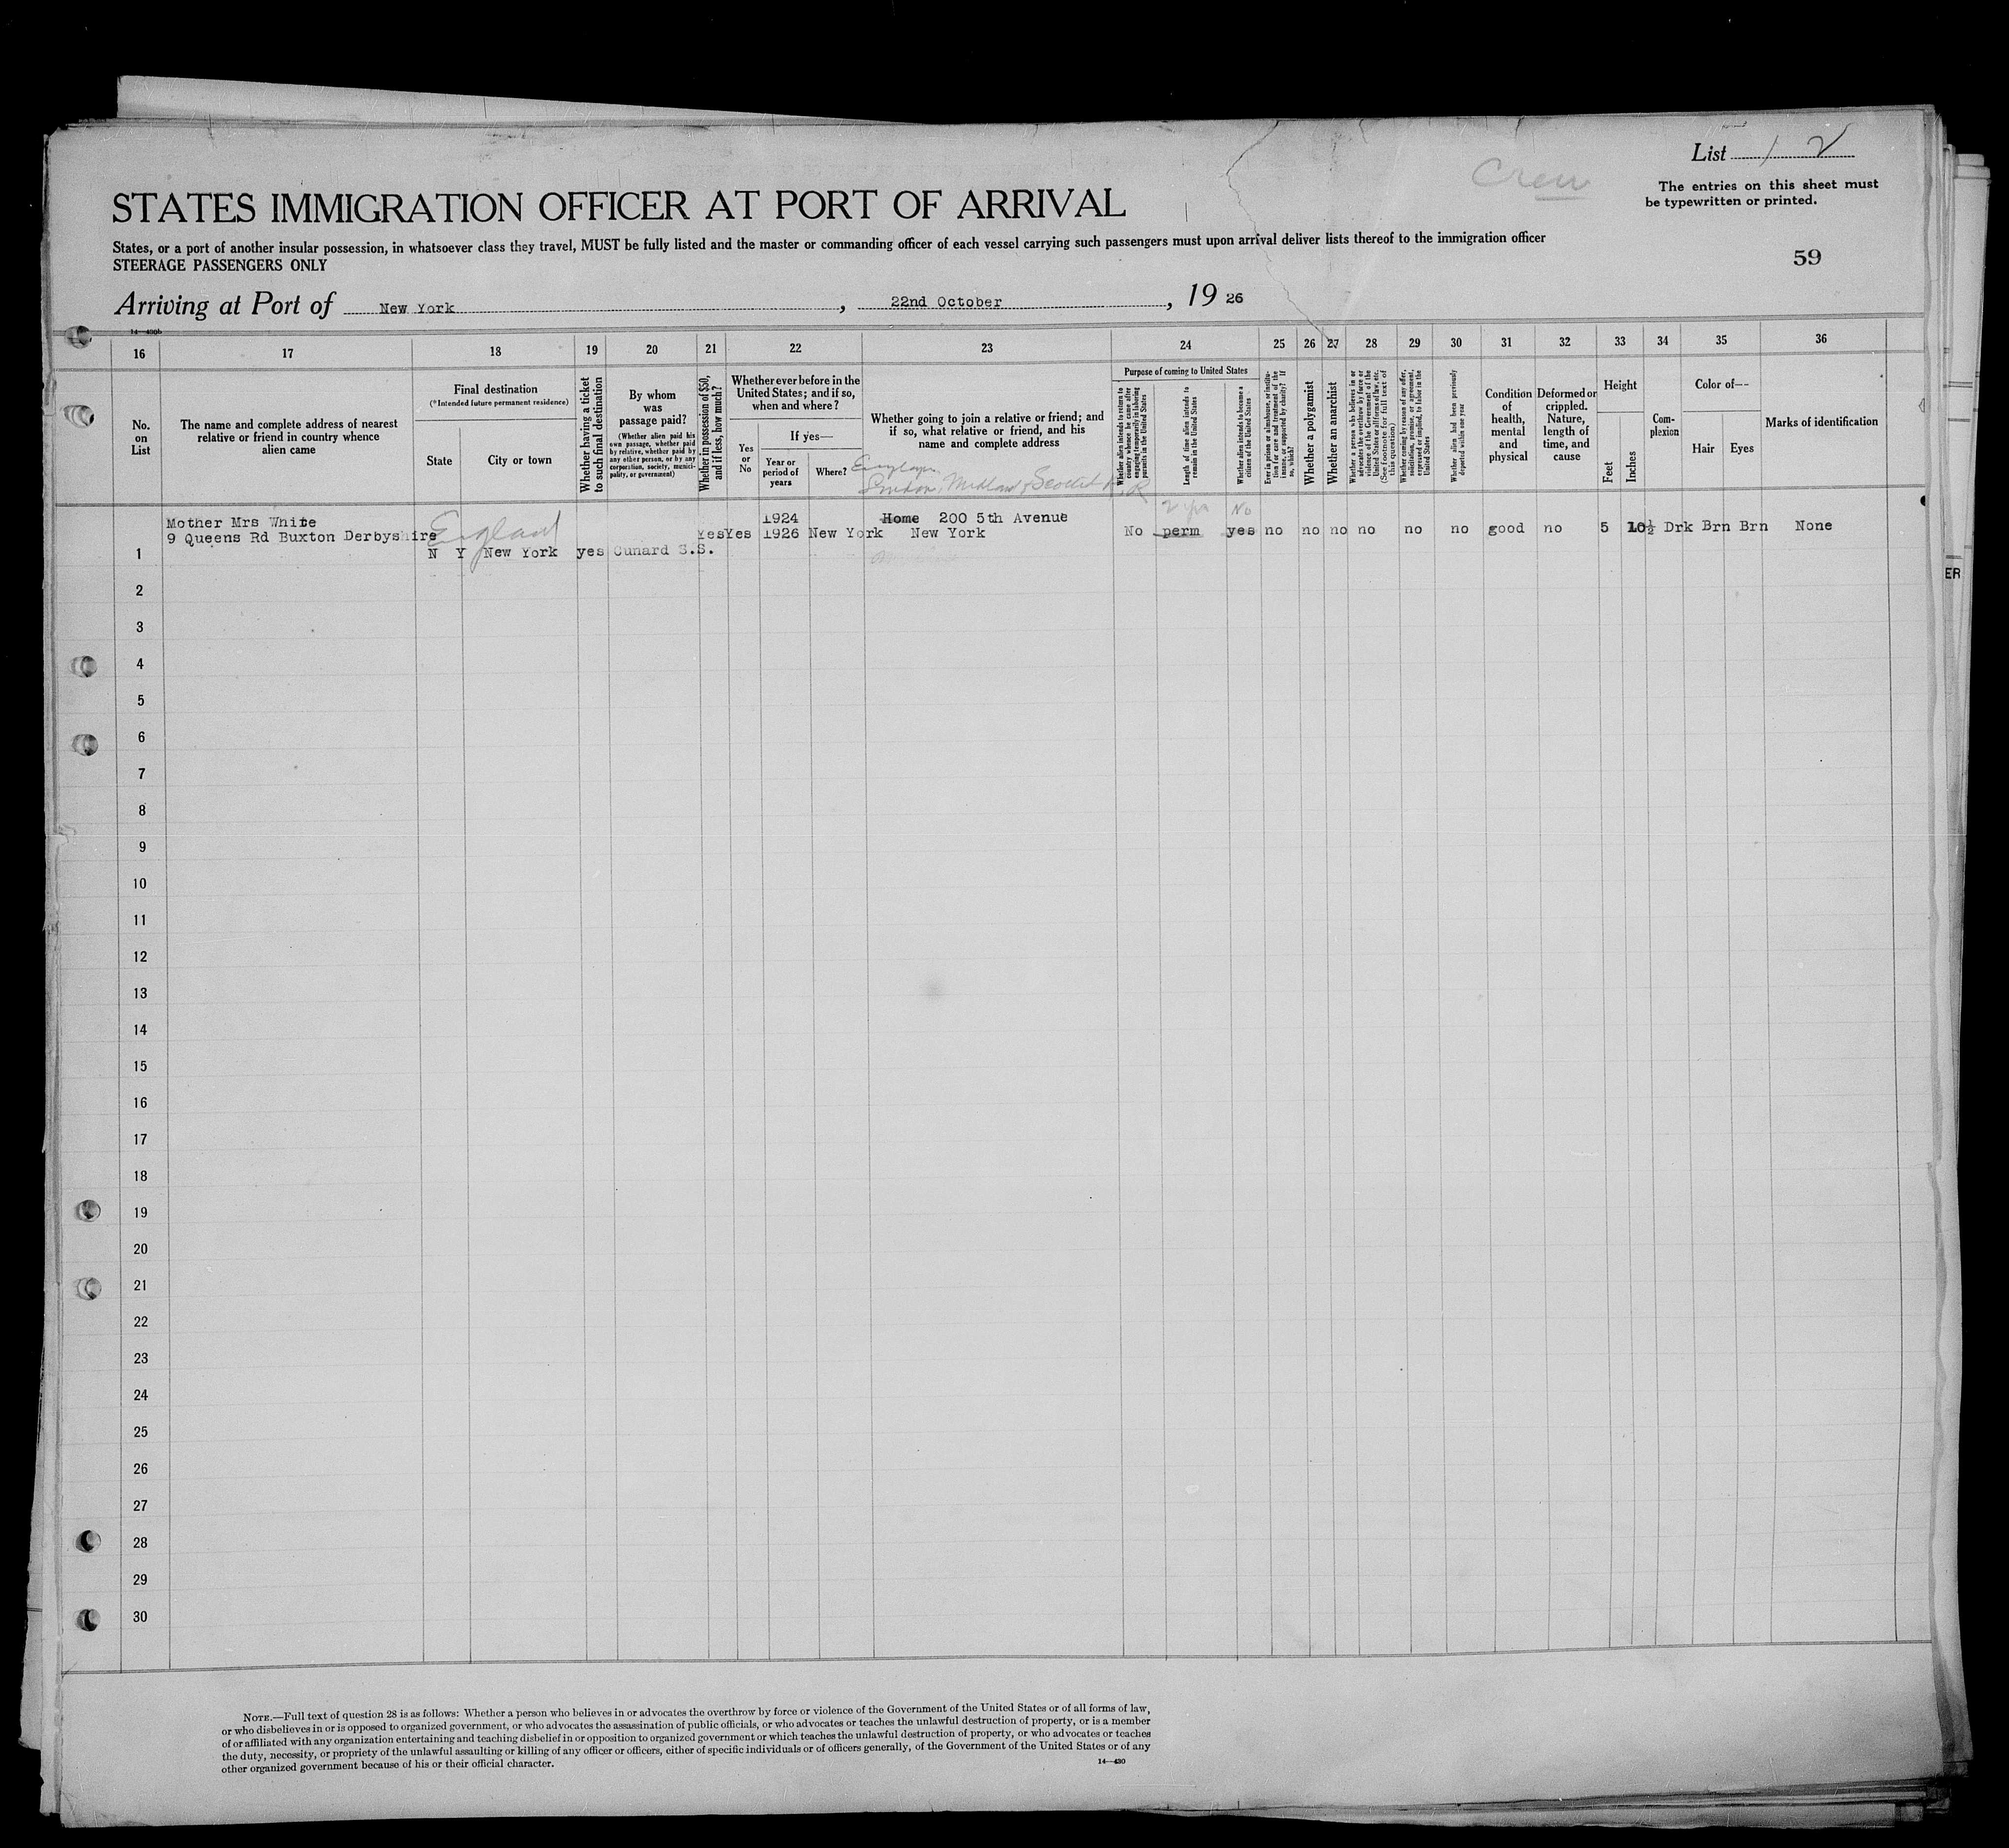 List 1 2
Crew
The entries on this sheet must
be typewritten or printed.
STATES IMMIGRATION OFFICER AT PORT OF ARRIVAL
States, or a port of another insular possession, in whatsoever class they travel, MUST be fully listed and the master or commanding officer of each vessel carrying such passengers must upon arrival deliver lists thereof to the immigration officer
STEERAGE PASSENGERS ONLY
59
Arriving at Port of New York, 22nd October, 19 26
14—430b
16 17 18 19 20 21 22 23 24 25 26 27 28 29 30 31 32 33 34 35 36
No.
on
List
The name and complete address of nearest
relative or friend in country whence
alien came
Final destination
(*Intended future permanent residence)
State
City or town
Whether having a ticket
to such final destination
By whom
was
passage paid?
(Whether alien paid his
own passage, whether paid
by relative, whether paid by
any other person, or by any
corporation, society, munici-
pality, or government)
Whether in possession of $50,
and if less, how much?
Whether ever before in the
United States; and if so,
when and where?
Yes
or
No
If yes—
Year or
period of
years
Where?
Whether going to join a relative or friend; and
if so, what relative or friend, and his
name and complete address
London, Midland & Scottish R. R
Purpose of coming to United States
Whether alien intends to return to
country whence he came after
engaging temporarily in laboring
pursuits in the United States
Length of time alien intends to
remain in the United States
Whether alien intends to become a
citizen of the United States
Ever in prison or almshouse, or institu-
tion for care and treatment of the
insane, or supported by charity? If
so, which?
Whether a polygamist
Whether an anarchist
Whether a person who believes in or
advocates the overthrow by force or
violence of the Government of the
United States or all forms of law, etc.
(See footnote for full text of
this question)
Whether coming by reason of any offer,
solicitation, promise, or agreement,
expressed or implied, to labor in the
United States
Whether alien had been previously
deported within one year
Condition
of
health,
mental
and
physical
Deformed or
crippled.
Nature,
length of
time, and
cause
Height
Feet
Inches
Com-
plexion
Color of—
Hair
Eyes
Marks of identification
2 yrs No
Mother Mrs White England 1924 Home 200 5th Avenue
9 Queens Rd Buxton Derbyshire Yes Yes 1926 New York New York No perm yes no no no no no no good no 5 10½ Drk Brn Brn None
1 N Y New York yes Cunard S.S.
2
3
4
5
6
7
8
9
10
11
12
13
14
15
16
17
18
19
20
21
22
23
24
25
26
27
28
29
30
ER
NOTE.—Full text of question 28 is as follows: Whether a person who believes in or advocates the overthrow by force or violence of the Government of the United States or of all forms of law,
or who disbelieves in or is opposed to organized government, or who advocates the assassination of public officials, or who advocates or teaches the unlawful destruction of property, or is a member
of or affiliated with any organization entertaining and teaching disbelief in or opposition to organized government or which teaches the unlawful destruction of property, or who advocates or teaches
the duty, necessity, or propriety of the unlawful assaulting or killing of any officer or officers, either of specific individuals or of officers generally, of the Government of the United States or of any
other organized government because of his or their official character.
14—430